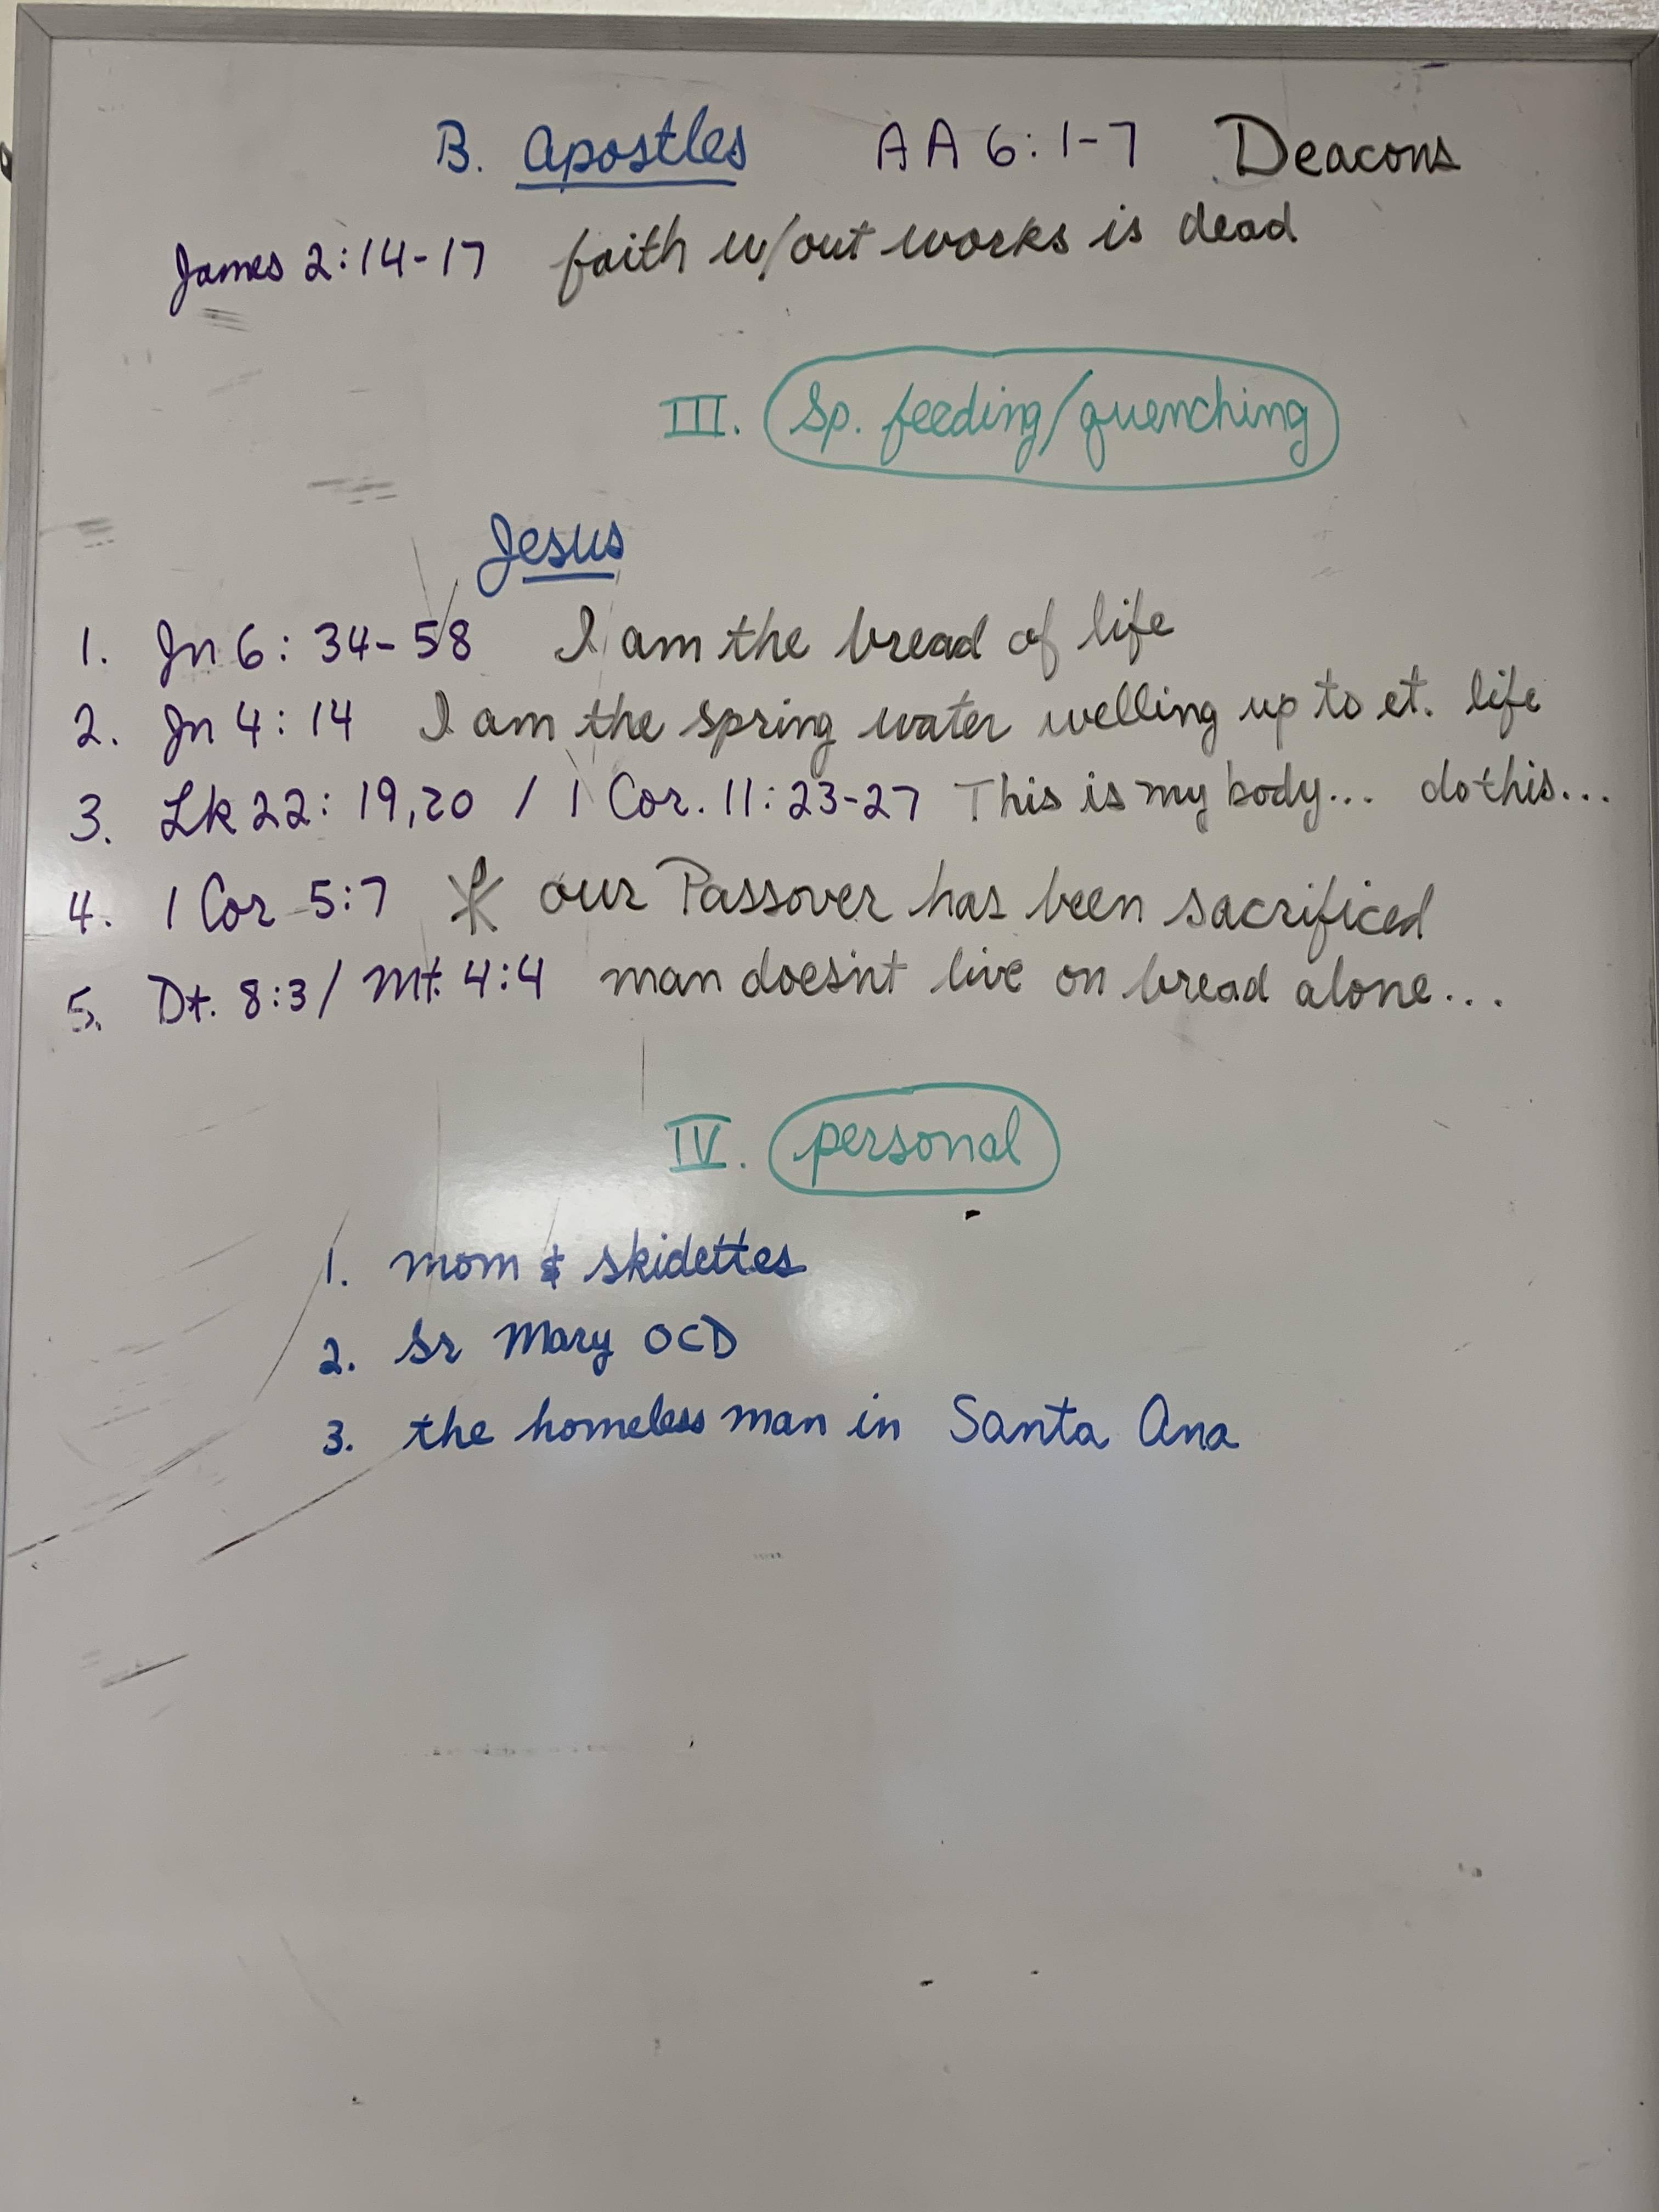 B. Apostles AA 6:1-7 Deacons
James 2:14-17 faith w/out works is dead
III. Sp. feeding/quenching
Jesus
1. Jn 6: 34-58 I am the bread of life
2. Jn 4: 14 I am the spring water welling up to et. life
3. Lk 22: 19,20 / 1 Cor. 11:23-27 This is my body... do this...
4. 1 Cor 5:7 our Passover has been sacrificed
5. Dt. 8:3/ Mt. 4:4 man doesn't live on bread alone...
IV. personal
1. mom & skidettes
2. Sr Mary OCD
3. the homeless man in Santa Ana